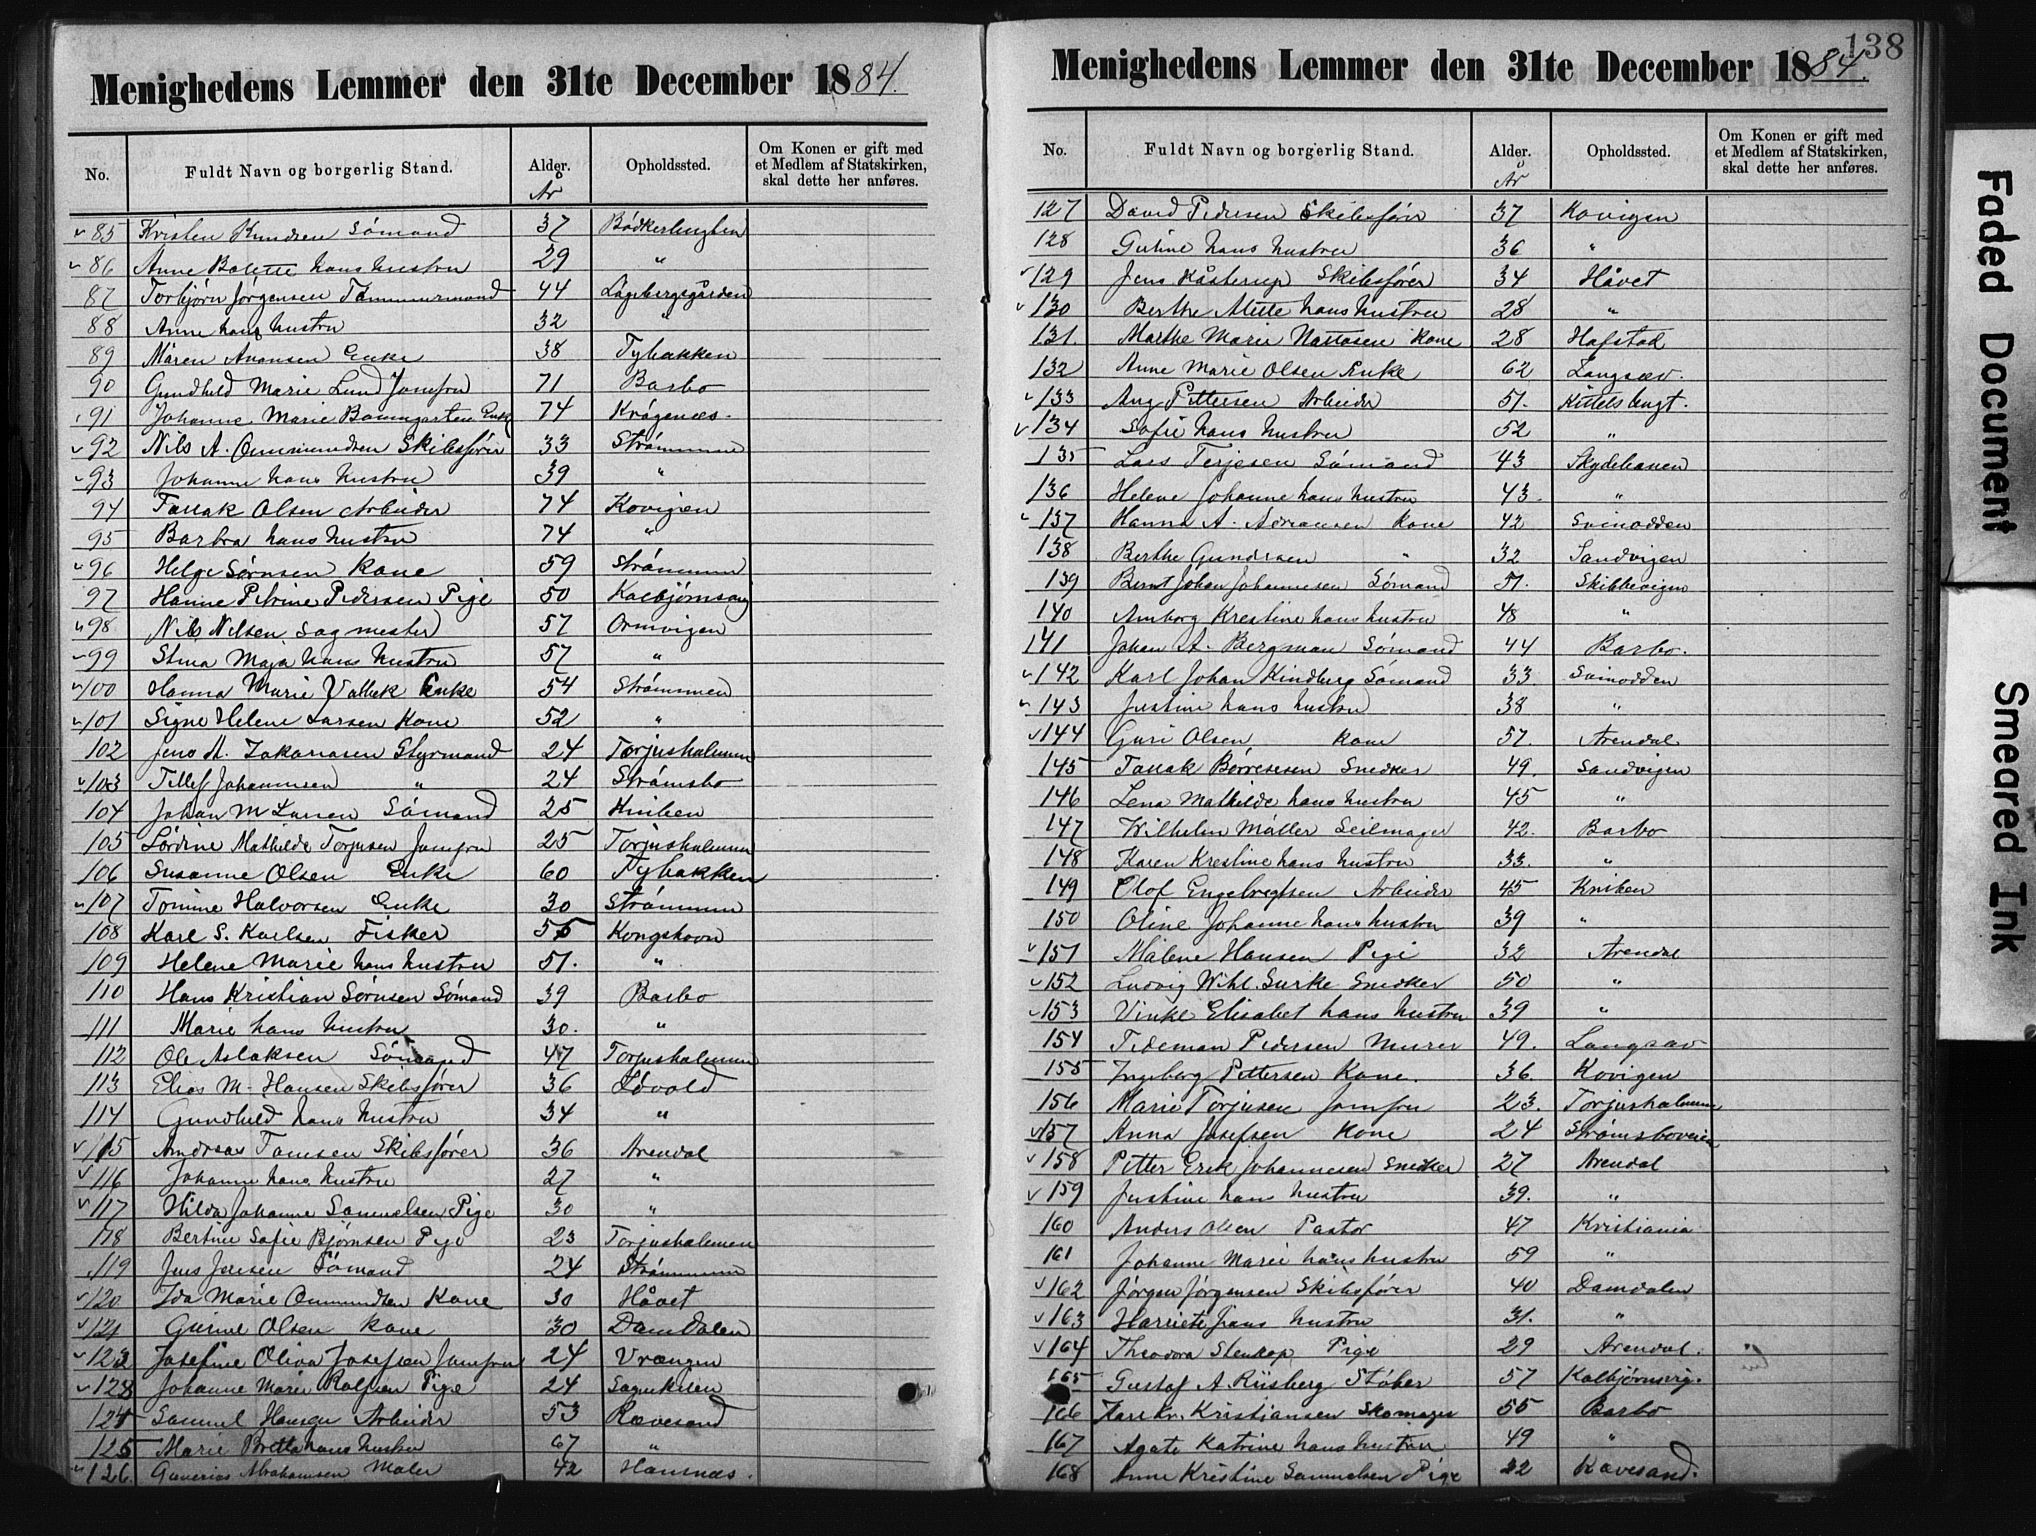 Menighedens Lemmer den 31te December 1884.
No. Fuldt Navn og borgerlig Stand. Alder. Opholdssted. Om Konen er gift med et Medlem af Statskirken, skal dette her anføres.
År
85 Kristen Knudsen Sømand 37
86 Anne Bolette hans hustru 29 "
87 Torbjørn Jørgensen Tømmermand 44
88 Anne hans hustru 32 "
89 Maren Enke 38 Tybakken
90 Gundhild Marie Lund Jomfru 71 Barbo
91 Johanne Marie Baumgarten Enke 74 Krøgenæs.
92 Nils A. Ommundsen Skibsfører 33 Strømmen
93 Johanne hans hustru 39 "
94 Tallak Olsen Arbeider 74 Kovigen
95 Barbra hans hustru 74 "
96 Helge Sørnsen Kone 59 Strømmen
97 Hanne Petrine Pedersen Pige 50 Kolbjørnsvig
98 Nils Nilsen Sagmester 57 Ormvigen
99 Stina Maja hans hustru 57 "
100 Hanna Marie Enke 54 Strømmen
101 Signe Helene Larsen Kone 52 "
102 Jens M. Zakariasen Styrmand 24 Torjusholmen
103 Tellef Johannsen " 24 Strømsbo
104 Johan M Larsen Sømand 25 Kniben
105 Lordine Mathilde Torjusen Jomfru 25 Torjusholmen
106 Susanne Olsen Enke 60 Tybakken
107 Tomine Halvorsen Enke 30 Strømmen
108 Karl S. Karlsen Fisker 55 Kongshavn
109 Helene Marie hans hustru 51. "
110 Hans Kristian Sørnsen Sømand 39 Barbo
111 Marie hans hustru 30. "
112 Ole Aslaksen Sømand 47 Torjusholmen
113 Elias M. Hansen Skibsfører 36 Løvold
114 Gundhild hans hustru 34 "
115 Andreas Tomsen Skibsfører 36 Arendal
116 Johanne hans hustru 27 "
117 Hilda Johanne Samuelsen Pige 30 "
118 Bertine Sofie Bjørnsen Pige 23 Torjusholmen
119 Jens Jensen Sømand 24 Strømmen
120 Ida Marie Ommundsen Kone 30 Håvet
121 Gurine Olsen Kone 30 Damdalen
122 Josefine Oliva Josefsen Jomfru 24 Vrængen
123 Johanne Marie Rolfsen Pige 24
124 Samuel Hansen Arbeider 53 Rævesand
125 Marie Britta hans hustru 67 "
126 Gunerius Abrahamsen Maler 42 Hansnæs.
138
Menighedens Lemmer den 31te December 1884.
No. Fuldt Navn og borgerlig Stand. Alder. Opholdssted. Om Konen er gift med et Medlem af Statskirken, skal dette her anføres.
År
127 David Pedersen Skibsfører 37 Kovigen
128 Gurine hans hustru 36 "
129 Jens Håsterup Skibsfører 34 Håvet
130 Berthe Mette hans hustru 28 "
131. Marthe Marie Kone 28 Hafstad
132 Anne Marie Olsen Enke 62 Langsæv.
133 Aug Pettersen Arbeider 51. Kittelsbugt.
134 Sofie hans hustru 52 "
135 Lars Terjesen Sømand 43 Skydebanen
136 Helene Johanne hans hustru 43. "
137 Hanna A. Adriansen Kone 42 Svinodden
138 Berthe Gundersen " 32 Sandvigen
139 Bernt Johan Johannesen Sømand 51. Skibbevigen
140 Amborg Krestine hans hustru 48 "
141 Johan A. Bergman Sømand 44 Barbo.
142 Karl Johan Kindberg Sømand 33 Svinodden
143 Justine hans hustru 38 "
144 Guri Olsen Kone 57. Arendal.
145 Tallak Børresesen Snedker 49. Sandvigen
146 Lena Mathilde hans hustru 45 "
147 Wilhelm Møller Seilmager 42. Barbo
148 Karen Krestine hans hustru 33. "
149 Olof Engebregtsen Arbeider 45 Kniben
150 Oline Johanne hans hustru 39 "
151 Malene Hansen Pige 32 Arendal
152 Ludvig Wihl. Surke Snedker 50 "
153 Vinke Elisabet hans hustru 39 "
154 Tideman Pedersen Murer 49. Langsæv
155 Ingeborg Pettersen Kone. 36. Kovigen
156 Marie Torjusen Jomfru 23. Torjusholmen
157 Anna Josefsen Kone 24 Strømsboveien
158 Petter Erik Johannesen Snedker 27 Arendal
159 Justine hans hustru 39. "
160 Anders Olsen Pastor 47 Kristiania
161 Johanne Marie hans hustru 59 "
162 Jørgen Jørgensen Skibsfører 40 Damdalen
163 Harriete hans hustru 31. "
164 Theodora Stenkop Pige 29 Arendal.
165 Gustaf A. Riisberg Støber 57 Kolbjørnsvig.
166 Karl Kr. Kristiansen Skomager 55 Barbo
167 Agate Katrine hans hustru 49 "
168 Anne Kristine Samuelsen Pige 32 Rævesand.
Faded Document
Smeared Ink